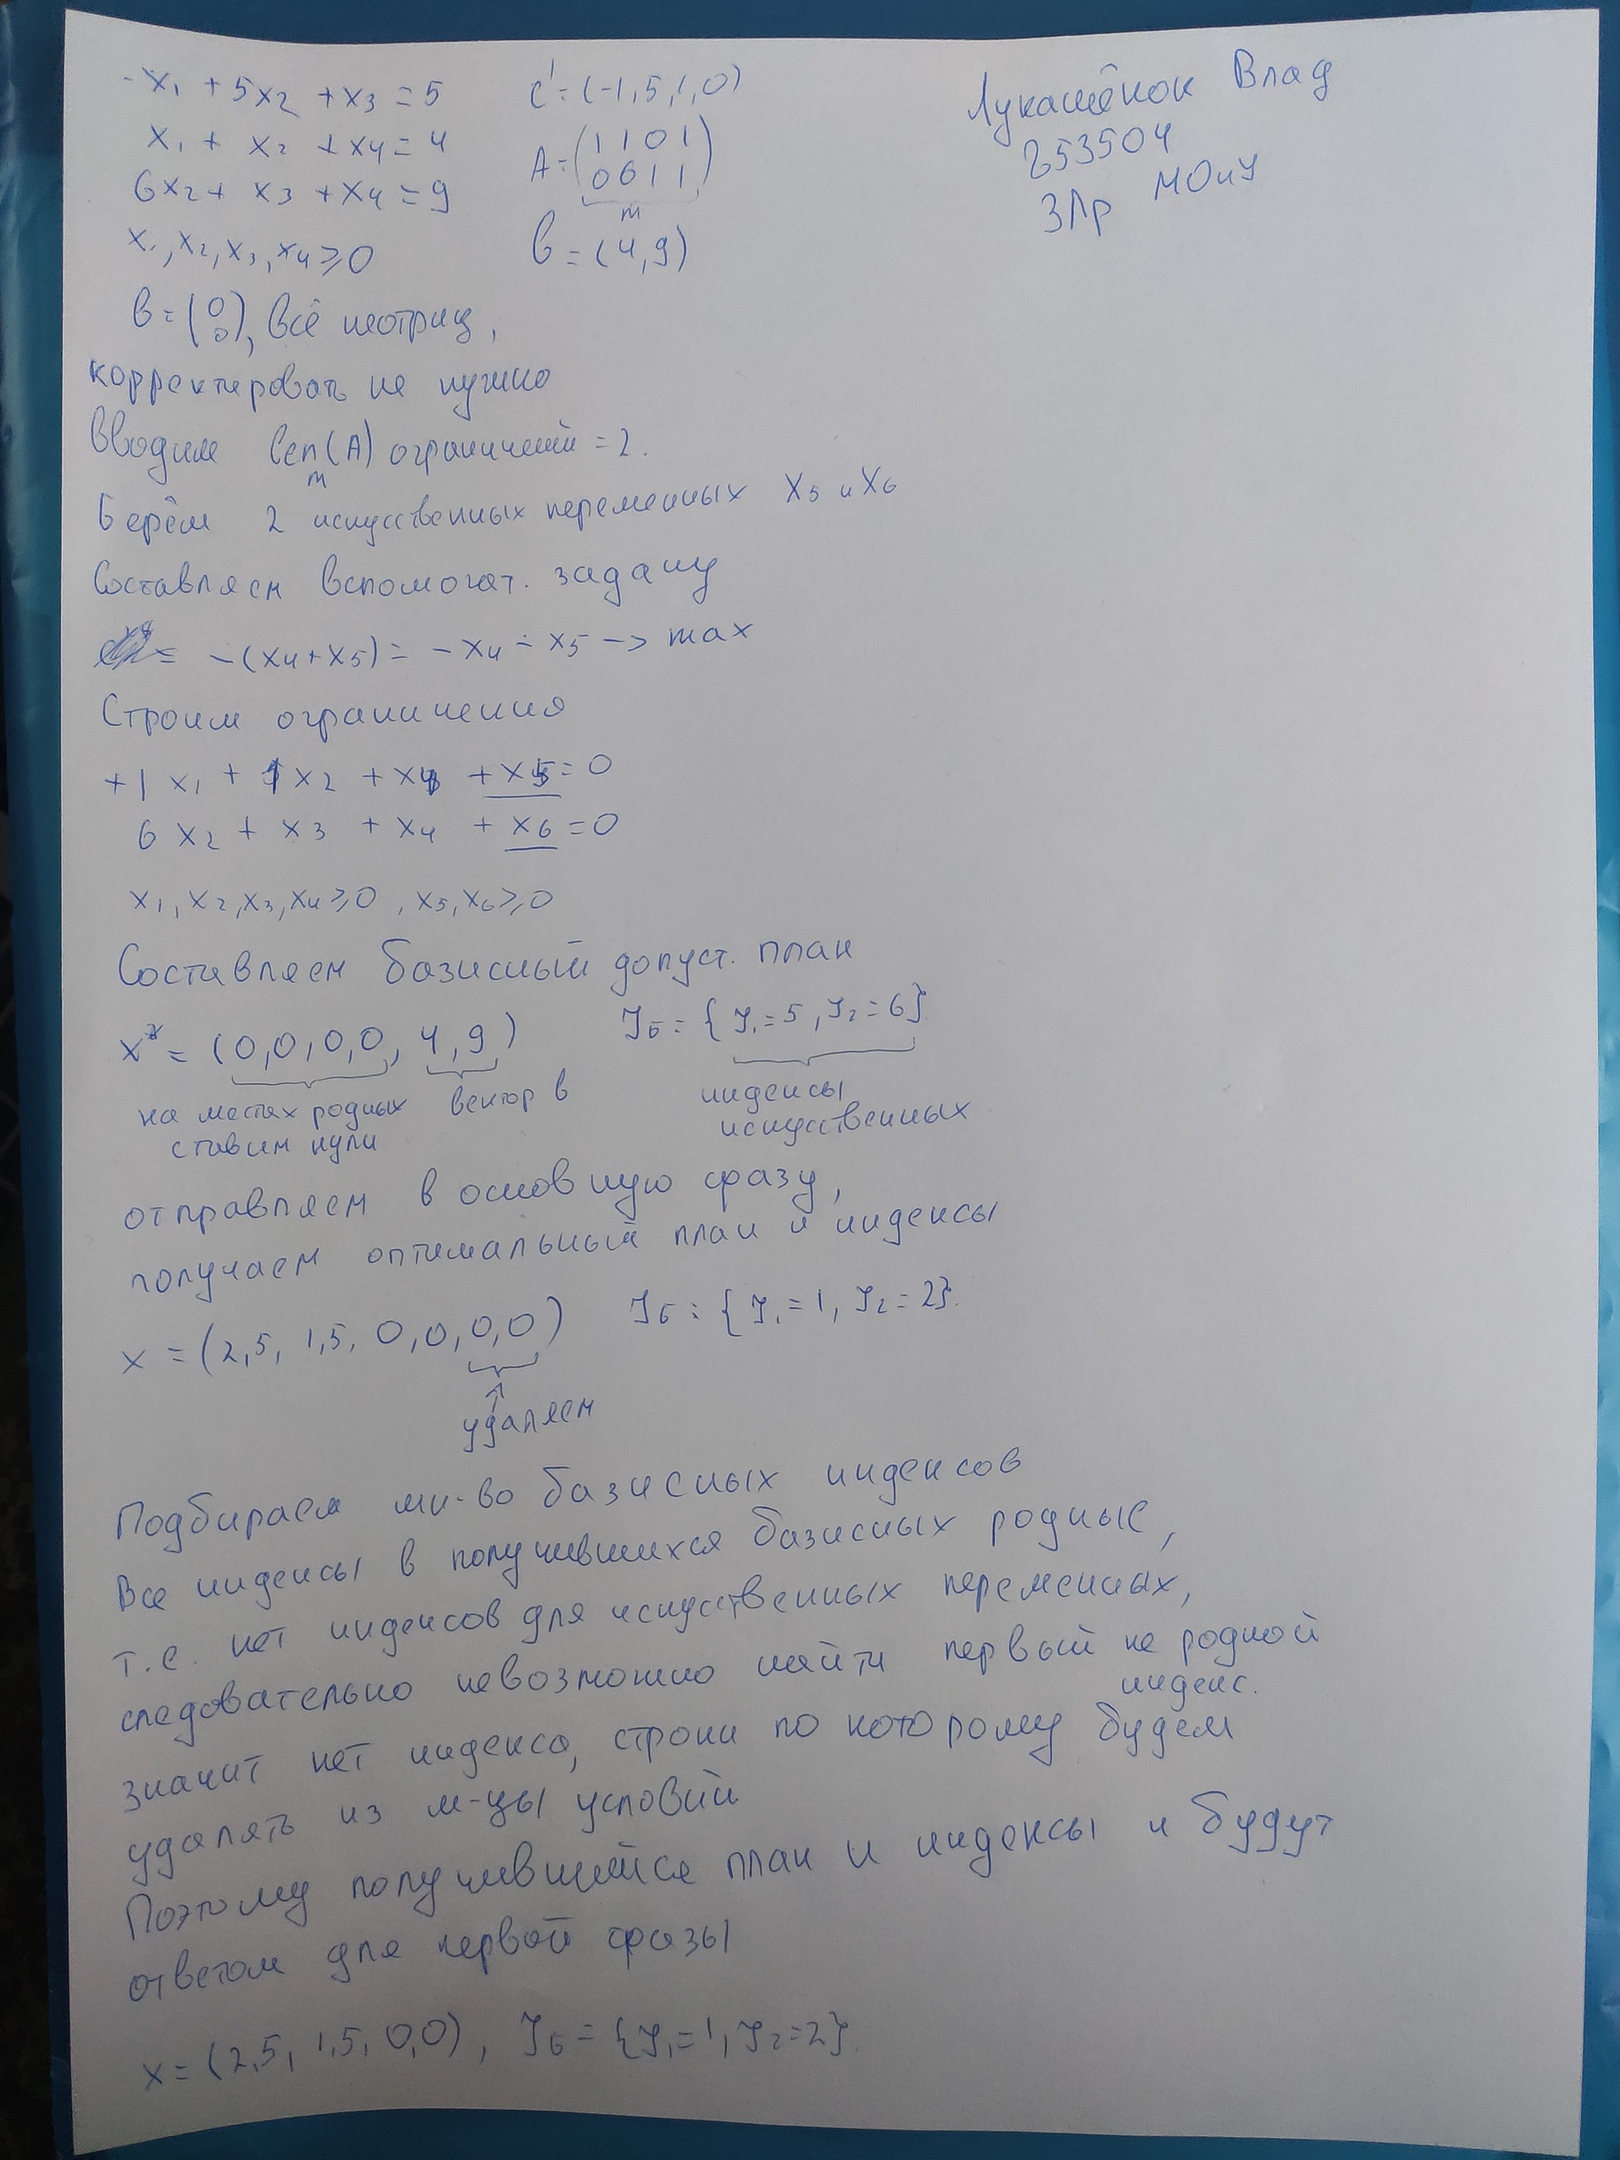 -x₁ + 5x₂ + x₃ = 5
x₁ + x₂ + x₄ = 4
6x₂ + x₃ + x₄ = 9
x₁, x₂, x₃, x₄ ≥ 0
c' = (-1, 5, 1, 0)
A = (1 1 0 1
0 6 1 1)
m
b = (4, 9)
Лукашёнок Влад
253504
3Лр МОиУ
b = (0 0), всё неотриц,
корректировать не нужно
Вводим len(A) ограничений = 2.
m
Берём 2 искусственных переменных x₅ и x₆
Составляем вспомогат. задачу
= -(x₄ + x₅) = -x₄ - x₅ -> max
Строим ограничения
+1 x₁ + 1 x₂ + x₄ + x₅ = 0
6 x₂ + x₃ + x₄ + x₆ = 0
x₁, x₂, x₃, x₄ ≥ 0, x₅, x₆ ≥ 0
Составляем базисный допуст. план
x* = (0, 0, 0, 0, 4, 9) J_Б = {J₁ = 5, J₂ = 6}
на местах родных вектор b индексы
ставим нули искусственных
отправляем в основную фразу,
получаем оптимальный план и индексы
x = (2,5, 1,5, 0, 0, 0, 0) J_Б = {J₁ = 1, J₂ = 2}.
удаляем
Подбираем мн-во базисных индексов
Все индексы в получившихся базисных родные,
т.е. нет индексов для искусственных переменных,
следовательно невозможно найти первый не родной
индекс.
значит нет индекса, строки по которому будем
удалять из м-цы условий
Поэтому получившийся план и индексы и будут
ответом для первой фразы
x = (2,5, 1,5, 0, 0), J_Б = {J₁ = 1, J₂ = 2}.